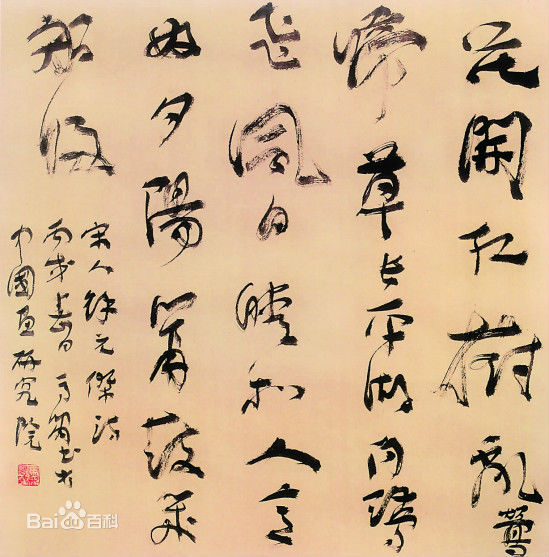 花開红樹亂鶯
啼草長平湖白鷺
飛風日晴和人意
好夕陽簫鼓幾
船歸
宋人徐元傑詩
丙戌春日書於
中國画研究院
Bai百科